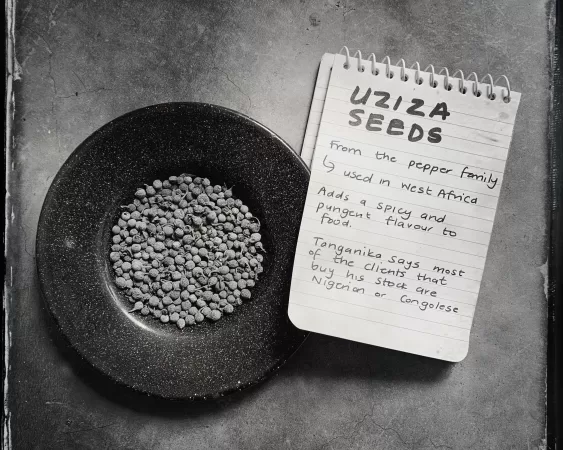 UZIZA
SEEDS
From the pepper family
↳ used in West Africa
Adds a spicy and
pungent flavour to
food.
Tanganika says most
of the clients that
buy his stock are
Nigerian or Congolese